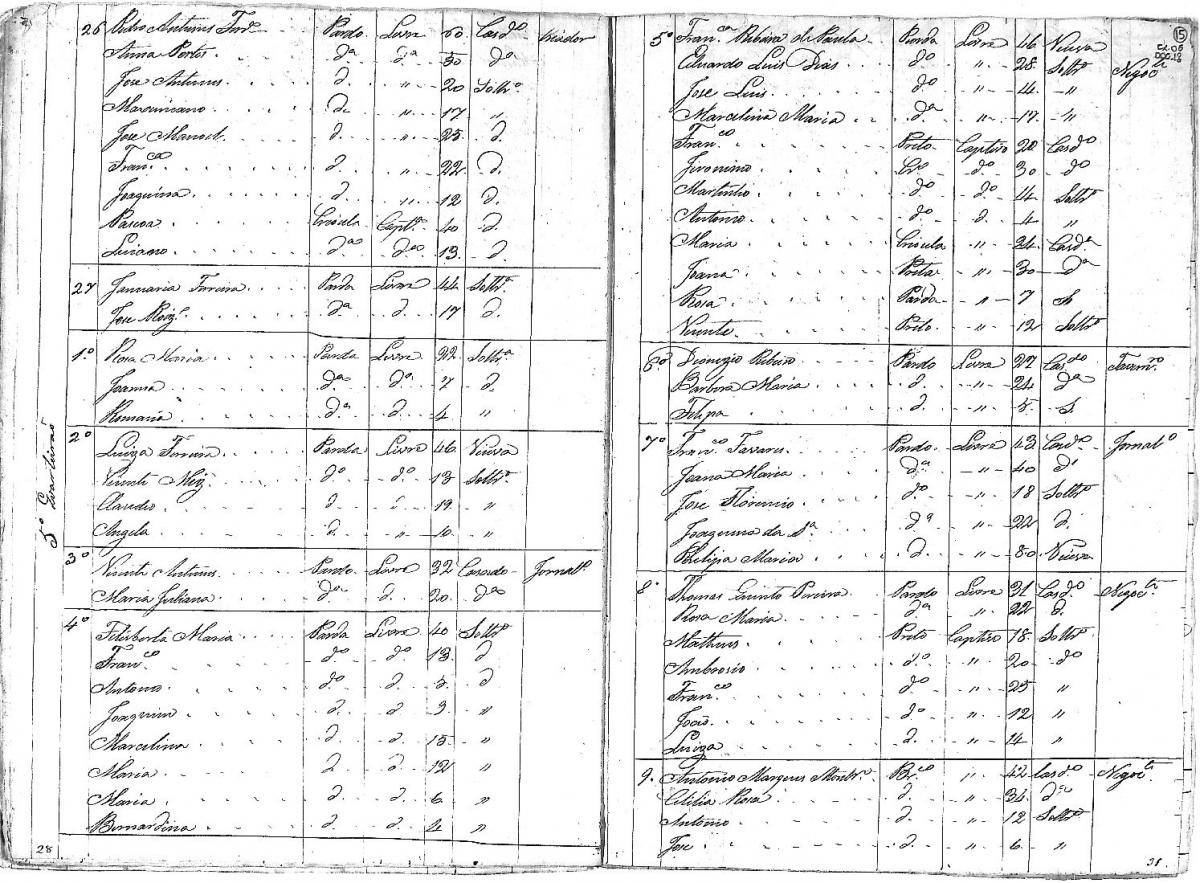 26 Pedro Antunes Pardo Livre 60 Casdo Creador
Anna Portes da da 50 do
Jose Antunes d. " 20 Soltro
Maximiano d. " 17 "
Jose Manoel d. " 25 d.
Franco d. " 22 d.
Joaquina d. " 12 d.
Pascoa Crioula Capto 40 d
Luciano dao dao 13 d.
27 Januaria Pereira Parda Livre 44 Soltra
Jose Roiz da d. 17 d.
5o Quarteirão
1o Rosa Maria Parda Livre 22 Soltra
Joanna da da 7 d
Romaria da d. 4 "
2o Luiza Pereira Parda Livre 46 Viuva
Vicente do do 13 Soltro
Claudio d. d. 19 "
Angela d. " 10 "
3o Vicente Antunes Pardo Livre 32 Casado Jornalo
Maria Juliana da d. 20 da
4o Feliberta Maria Parda Livre 40 Soltra
Franco do do 13 d
Antonio do d. 5 d
Joaquim d d 3 "
Marcelina d d. 15 "
Maria d d. 12 "
Maria d d. 6 "
Bernardina d d. 4 "
28
15
CX.06
DOC.18
5o Franca Ribeira de Paula Parda Livre 46 Viuva
Eduardo Luis Dias do " 28 Soltro Negocte
Jose Luis do " 4 "
Marcelina Maria da " 17 "
Franco Preto Captivo 20 Casdo
Jeronimo do 30 do
Martinho do do 44 Soltro
Antonio do d. 4 "
Maria Crioula " 24 Casda
Joana Preta " 30 da
Rosa Parda " 7 S.
Vicente Preto " 12 Soltro
6o Dionizio Ribeiro Pardo Livre 27 Casdo
Barbora Maria d. " 24 da
Felipa d. " 5 S.
7o Franco Tavares Pardo Livre 43 Casdo Jornalo
Joana Maria da " 40 d
Jose Florencio do " 18 Soltro
Joaquina da Sa da " 22 d.
Philipa Maria d. " 80 Viuva
8 Thomas Pereira Pardo Livre 31 Casdo Negocte
Rosa Maria da " 22 d.
Matheus Preto Captivo 18 Soltro
Ambrosio do " 20 do
Franco do " 25 "
João do " 12 "
Luiza d. " 14 "
9. Antonio Marques Brco " 42 Casdo Negocte
Cicilia Rosa d. " 34 da
Antonio d. " 12 Soltro
Jose d. " 6 "